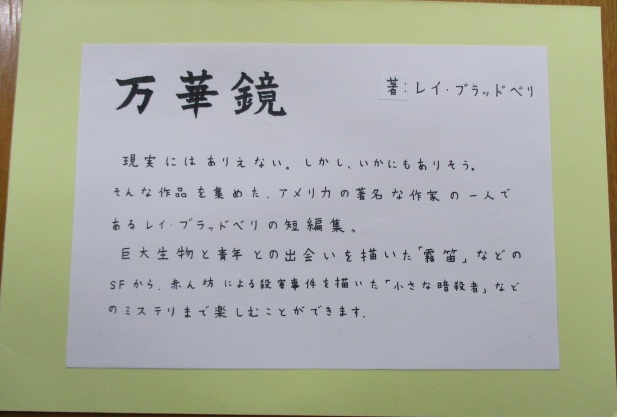 万華鏡
著:レイ・ブラッドベリ
現実にはありえない。しかし、いかにもありそう。
そんな作品を集めた、アメリカの著名な作家の一人で
あるレイ・ブラッドベリの短編集。
巨大生物と青年との出会いを描いた「霧笛」などの
SFから、赤ん坊による殺害事件を描いた「小さな暗殺者」など
のミステリまで楽しむことができます.